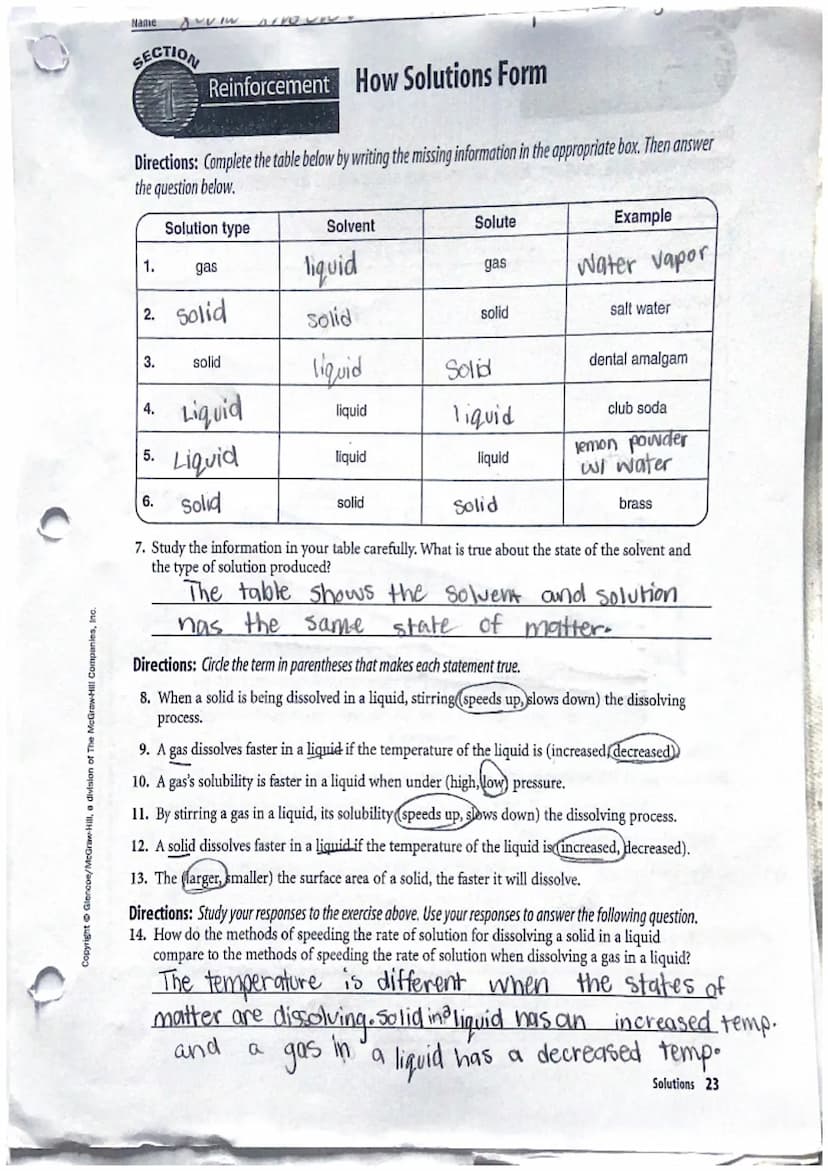 Name
SECTION
1 Reinforcement How Solutions Form
Directions: Complete the table below by writing the missing information in the appropriate box. Then answer
the question below.
Solution type Solvent Solute Example
1. gas liquid gas Water vapor
2. solid solid solid salt water
3. solid liquid Solid dental amalgam
4. Liquid liquid liquid club soda
5. Liquid liquid liquid lemon powder
w/ water
6. Solid solid Solid brass
7. Study the information in your table carefully. What is true about the state of the solvent and
the type of solution produced?
The table shows the solvent and solution
has the same state of matter.
Directions: Circle the term in parentheses that makes each statement true.
8. When a solid is being dissolved in a liquid, stirring (speeds up, slows down) the dissolving
process.
9. A gas dissolves faster in a liquid if the temperature of the liquid is (increased, decreased)
10. A gas's solubility is faster in a liquid when under (high, low) pressure.
11. By stirring a gas in a liquid, its solubility (speeds up, slows down) the dissolving process.
12. A solid dissolves faster in a liquid if the temperature of the liquid is (increased, decreased).
13. The (larger, smaller) the surface area of a solid, the faster it will dissolve.
Directions: Study your responses to the exercise above. Use your responses to answer the following question.
14. How do the methods of speeding the rate of solution for dissolving a solid in a liquid
compare to the methods of speeding the rate of solution when dissolving a gas in a liquid?
The temperature is different when the states of
matter are dissolving. Solid in a liquid has an increased temp.
and a gas in a liquid has a decreased temp.
Solutions 23
Copyright © Glencoe/McGraw-Hill, a division of The McGraw-Hill Companies, Inc.